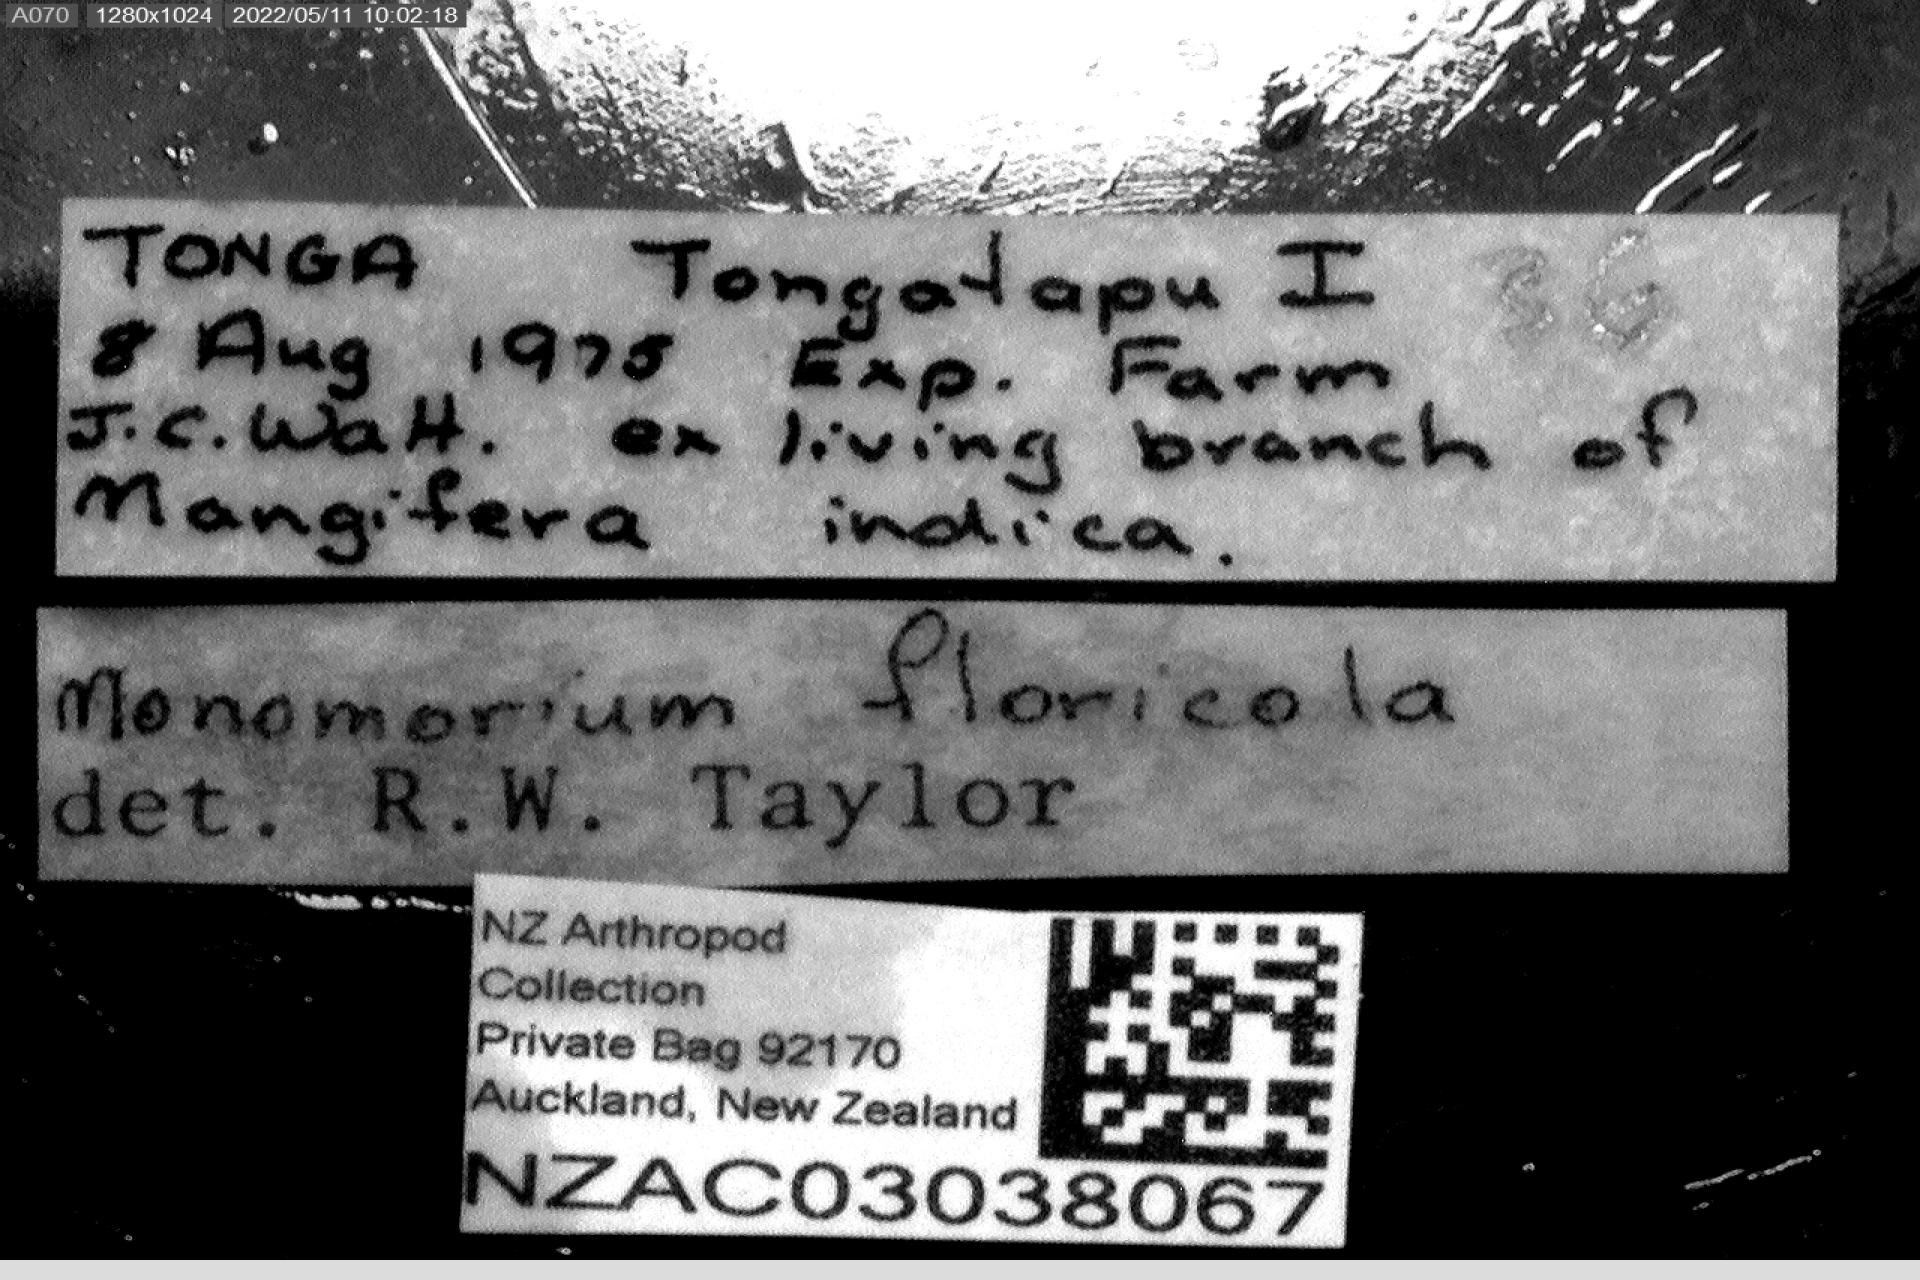 A070 1280x1024 2022/05/11 10:02:18
TONGA Tongatapu I
8 Aug 1975 Exp. Farm
J.C. Watt. ex living branch of
Mangifera indica.
Monomorium floricola
det. R.W. Taylor
NZ Arthropod
Collection
Private Bag 92170
Auckland, New Zealand
NZAC03038067